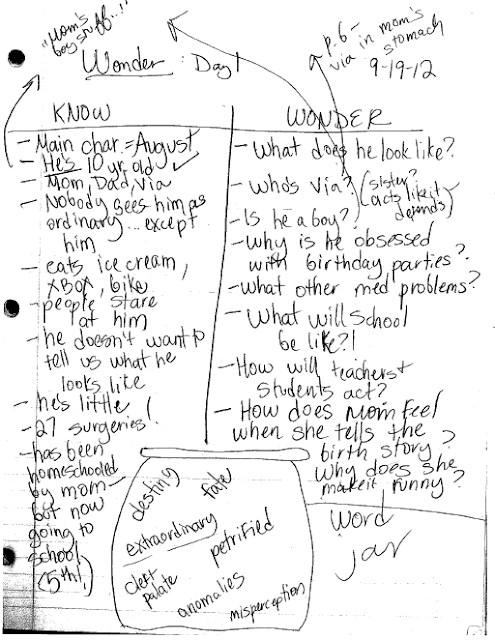 "Mom's
boy stuff..!"
Wonder : Day 1
p. 6 -
via in mom's
stomach
9-19-12
KNOW
- Main char. = August
- He's 10 yr. old ✓
- Mom, Dad, Via
- Nobody sees him as
ordinary... except
him
- eats ice cream,
XBOX, bike
- people stare
at him
- he doesn't want to
tell us what he
looks like
- he's little
- 27 surgeries!
- has been
homeschooled
by mom -
but now
going to
school
(5th!)
WONDER
- What does he look like?
- Who's Via? (sister?
acts like it
depends)
- Is he a boy?
- Why is he obsessed
with birthday parties?
- What other med problems?
- What will school
be like?!
- How will teachers +
students act?
- How does Mom feel
when she tells the
birth story?
Why does she
make it funny?
destiny
fate
extraordinary
petrified
cleft
palate
anomalies
misperception
word
jar